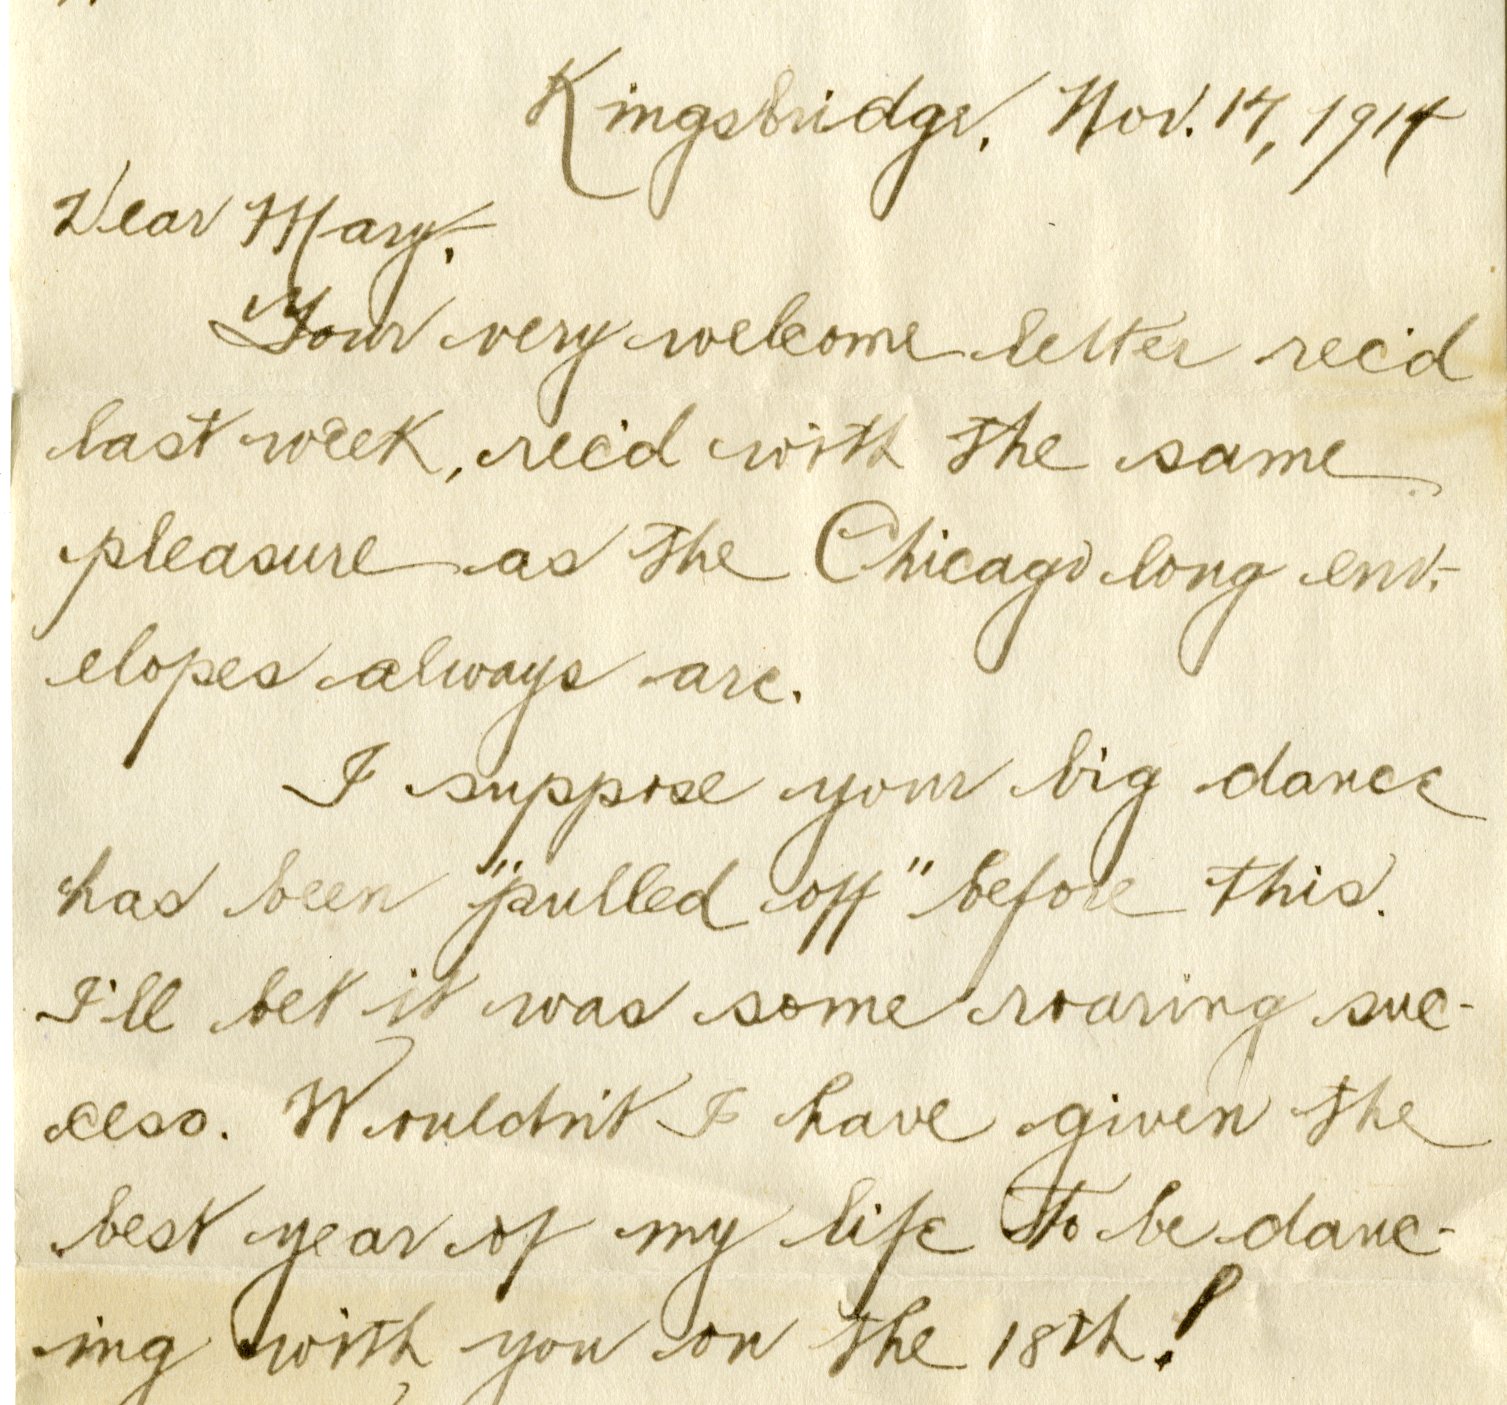 Kingsbridge, Nov. 14, 1914
Dear Mary,
Your very welcome letter rec'd
last week, rec'd with the same
pleasure as the Chicago long env-
elopes always are.
I suppose your big dance
has been "pulled off" before this.
I'll bet it was some roaring suc-
cess. Wouldn't I have given the
best year of my life to be danc-
ing with you on the 18th!